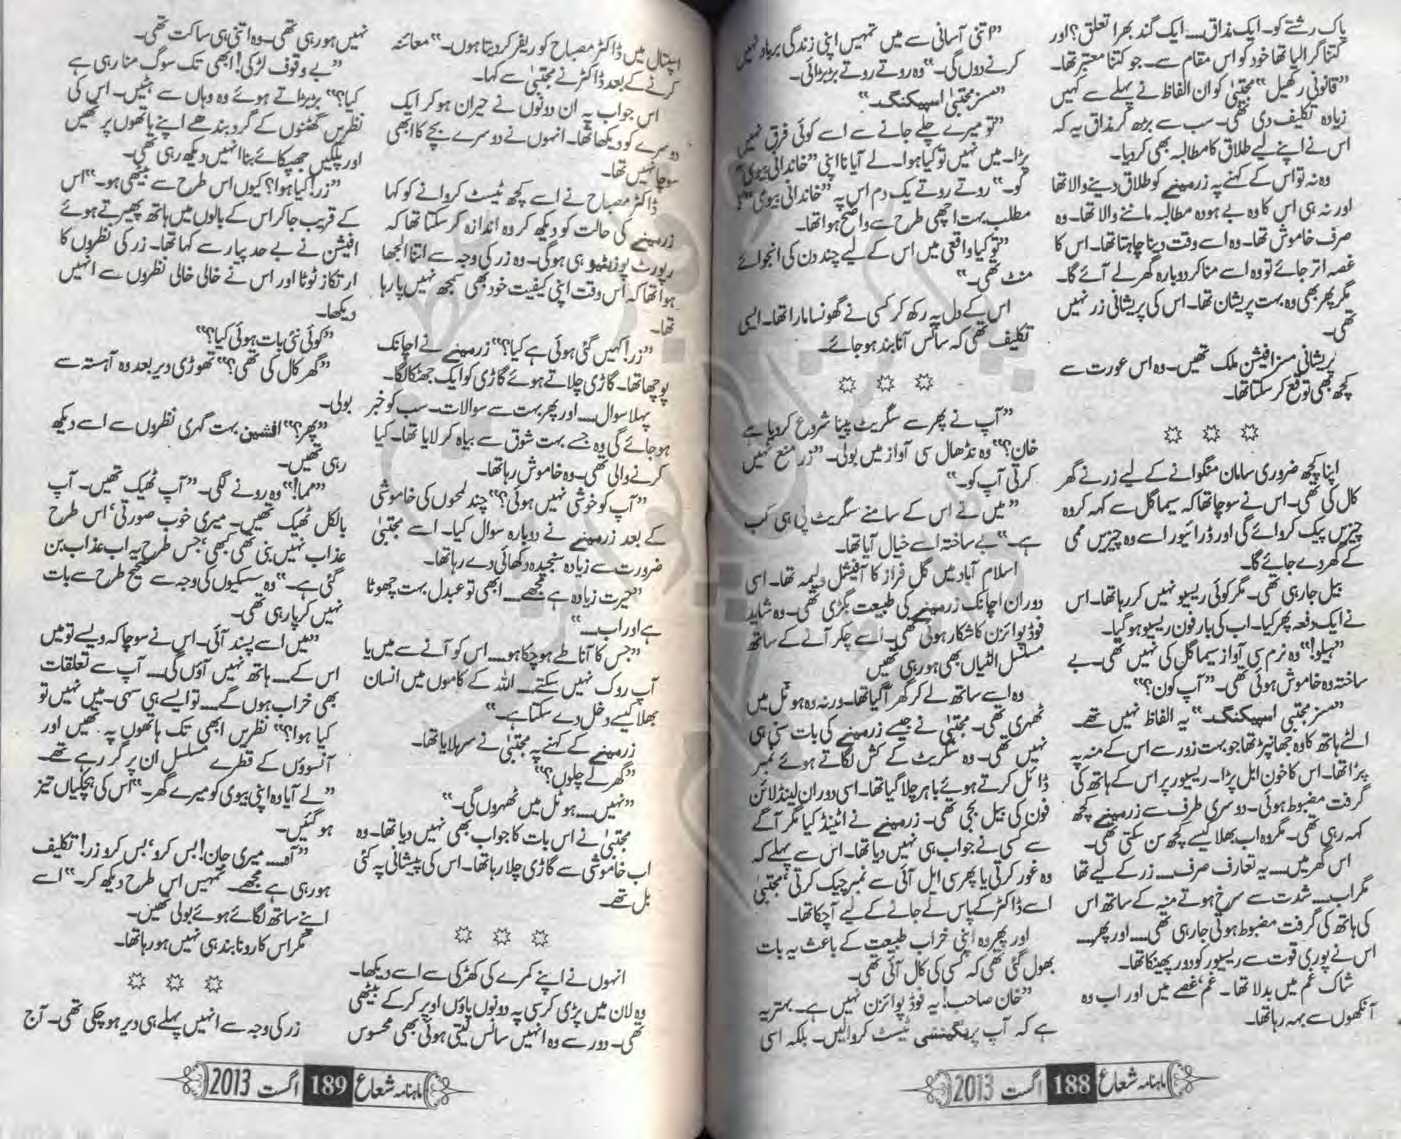 پاک رشتے کو۔ ایک مذاق۔۔۔ ایک گند بھرا تعلق؟ اور
کتنا گرا لیا تھا خود کو اس مقام سے۔ جو کتنا معتبر تھا۔
”قانونی رکھیل“ مجتبیٰ کو ان الفاظ نے پہلے سے کہیں
زیادہ تکلیف دی تھی۔ سب سے بڑھ کر مذاق یہ کہ
اس نے اپنے لیے طلاق کا مطالبہ بھی کر دیا۔
وہ نہ تو اس کے کہنے پہ زرمینے کو طلاق دینے والا تھا
اور نہ ہی اس کا وہ بے ہودہ مطالبہ ماننے والا تھا۔ وہ
صرف خاموش تھا۔ وہ اسے وقت دینا چاہتا تھا۔ اس کا
غصہ اتر جائے تو وہ اسے منا کر دوبارہ گھر لے آئے گا۔
مگر پھر بھی وہ بہت پریشان تھا۔ اس کی پریشانی زر نہیں
تھی۔
پریشانی مسز افیشن ملک تھیں۔ وہ اس عورت سے
کچھ بھی توقع کر سکتا تھا۔
☼ ☼ ☼
اپنا کچھ ضروری سامان منگوانے کے لیے زر نے گھر
کال کی تھی۔ اس نے سوچا تھا کہ سیما گل سے کہہ کر وہ
چیزیں پیک کروائے گی اور ڈرائیور اسے وہ چیزیں ممی
کے گھر دے جائے گا۔
بیل جا رہی تھی۔ مگر کوئی ریسیو نہیں کر رہا تھا۔ اس
نے ایک دفعہ پھر کیا۔ اب کی بار فون ریسیو ہو گیا۔
”ہیلو!“ وہ نرم سی آواز سیما گل کی نہیں تھی۔ بے
ساختہ وہ خاموش ہوئی تھی۔ ”آپ کون؟“
”مسز مجتبیٰ اسپیکنگ۔“ یہ الفاظ نہیں تھے۔
الٹے ہاتھ کا وہ بھانپڑ تھا جو بہت زور سے اس کے منہ پہ
پڑا تھا۔ اس کا خون ابل پڑا۔ ریسیور پر اس کے ہاتھ کی
گرفت مضبوط ہوئی۔ دوسری طرف سے زرمینے کچھ
کہہ رہی تھی۔ مگر وہ اب بھلا کیسے کچھ سن سکتی تھی۔
اس گھر میں۔۔۔ یہ تعارف صرف۔۔۔ زر کے لیے تھا
مگر اب۔۔۔ شدت سے سرخ ہوتے منہ کے ساتھ اس
کی ہاتھ کی گرفت مضبوط ہوتی جا رہی تھی۔۔۔ اور پھر۔۔۔
اس نے پوری قوت سے ریسیور کو دور پھینکا تھا۔
شاک غم میں بدلا تھا۔ غم، غصے میں اور اب وہ
آنکھوں سے بہہ رہا تھا۔
”اتنی آسانی سے میں تمہیں اپنی زندگی برباد نہیں
کرنے دوں گی۔“ وہ روتے روتے بڑبڑائی۔
”مسز مجتبیٰ اسپیکنگ۔“
”تو میرے چلے جانے سے اسے کوئی فرق نہیں
پڑا۔ میں نہیں تو کیا ہوا۔ لے آیا نا اپنی ”خاندانی بیوی“
کو۔“ روتے روتے یک دم اس پہ ”خاندانی بیوی“ کا
مطلب بہت اچھی طرح سے واضح ہوا تھا۔
”تو کیا واقعی میں اس کے لیے چند دن کی انجوائے
منٹ تھی۔“
اس کے دل پہ رکھ کر کسی نے گھونسا مارا تھا۔ ایسی
تکلیف تھی کہ سانس آنا بند ہو جائے۔
☼ ☼ ☼
”آپ نے پھر سے سگریٹ پینا شروع کر دیا ہے
خان؟“ وہ نڈھال سی آواز میں بولی۔ ”زر منع نہیں
کرتی آپ کو۔“
”میں نے اس کے سامنے سگریٹ پی ہی کب
ہے۔“ بے ساختہ اسے خیال آیا تھا۔
اسلام آباد میں گل فراز کا آفیشل ولیمہ تھا۔ اسی
دوران اچانک زرمینے کی طبیعت بگڑی تھی۔ وہ شاید
فوڈ پوائزن کا شکار ہوئی تھی۔ اسے چکر آنے کے ساتھ
مسلسل الٹیاں بھی ہو رہی تھیں
وہ اسے ساتھ لے کر گھر آ گیا تھا۔ ورنہ وہ ہوٹل میں
ٹھہری تھی۔ مجتبیٰ نے جیسے زرمینے کی بات سنی ہی
نہیں تھی۔ وہ سگریٹ کے کش لگاتے ہوئے نمبر
ڈائل کرتے ہوئے باہر چلا گیا تھا۔ اسی دوران لینڈ لائن
فون کی بیل بجی تھی۔ زرمینے نے اٹینڈ کیا مگر آگے
سے کسی نے جواب ہی نہیں دیا تھا۔ اس سے پہلے کہ
وہ غور کرتی یا پھر سی ایل آئی سے نمبر چیک کرتی، مجتبیٰ
اسے ڈاکٹر کے پاس لے جانے کے لیے آ چکا تھا۔
اور پھر وہ اپنی خراب طبیعت کے باعث یہ بات
بھول گئی تھی کہ کسی کی کال آئی تھی۔
”خان صاحب! یہ فوڈ پوائزن نہیں ہے۔ بہتر یہ
ہے کہ آپ پریگنینسی ٹیسٹ کروالیں۔ بلکہ اسی
ماہنامہ شعاع 188 اگست 2013
اسپتال میں ڈاکٹر مصباح کو ریفر کر دیتا ہوں۔“ معائنہ
کرنے کے بعد ڈاکٹر نے مجتبیٰ سے کہا۔
اس جواب پہ ان دونوں نے حیران ہو کر ایک
دوسرے کو دیکھا تھا۔ انہوں نے دوسرے بچے کا ابھی
سوچا نہیں تھا۔
ڈاکٹر مصباح نے اسے کچھ ٹیسٹ کروانے کو کہا
زرمینے کی حالت کو دیکھ کر وہ اندازہ کر سکتا تھا کہ
رپورٹ پوزیٹیو ہی ہو گی۔ وہ زر کی وجہ سے اتنا الجھا
ہوا تھا کہ اُس وقت اپنی کیفیت خود بھی سمجھ نہیں پا رہا
تھا۔
”زر! کہیں گئی ہوئی ہے کیا؟“ زرمینے نے اچانک
پوچھا تھا۔ گاڑی چلاتے ہوئے گاڑی کو ایک جھٹکا لگا۔
پہلا سوال۔۔۔ اور پھر بہت سے سوالات۔ سب کو خبر
ہو جائے گی وہ جسے بہت شوق سے بیاہ کر لایا تھا۔ کیا
کرنے والی تھی۔ وہ خاموش رہا تھا۔
”آپ کو خوشی نہیں ہوئی؟“ چند لمحوں کی خاموشی
کے بعد زرمینے نے دوبارہ سوال کیا۔ اسے مجتبیٰ
ضرورت سے زیادہ سنجیدہ دکھائی دے رہا تھا۔
”حیرت زیادہ ہے مجھے۔۔۔ ابھی تو عبدل بہت چھوٹا
ہے اور اب۔۔۔“
”جس کا آنا طے ہو چکا ہو۔۔۔ اس کو آنے سے میں یا
آپ روک نہیں سکتے۔۔۔ اللہ کے کاموں میں انسان
بھلا کیسے دخل دے سکتا ہے۔“
زرمینے کے کہنے پہ مجتبیٰ نے سر ہلایا تھا۔
”گھر لے چلوں؟“
”نہیں۔۔۔ ہوٹل میں ٹھہروں گی۔“
مجتبیٰ نے اس بات کا جواب بھی نہیں دیا تھا۔ وہ
اب خاموشی سے گاڑی چلا رہا تھا۔ اس کی پیشانی پہ کئی
بل تھے۔
☼ ☼ ☼
انہوں نے اپنے کمرے کی کھڑکی سے اسے دیکھا۔
وہ لان میں پڑی کرسی پہ دونوں پاؤں اوپر کر کے بیٹھی
تھی۔ دور سے وہ انہیں سانس لیتی ہوئی بھی محسوس
نہیں ہو رہی تھی۔ وہ اتنی ہی ساکت تھی۔
”بے وقوف لڑکی! ابھی تک سوگ منا رہی ہے
کیا؟“ بڑبڑاتے ہوئے وہ وہاں سے ہٹیں۔ اس کی
نظریں گھٹنوں کے گرد بندھے اپنے ہاتھوں پر تھیں
اور پلکیں جھپکائے بنا انہیں دیکھ رہی تھی۔
”زر! کیا ہوا؟ کیوں اس طرح سے بیٹھی ہو۔“ اس
کے قریب جا کر اس کے بالوں میں ہاتھ پھیرتے ہوئے
افیشن نے بے حد پیار سے کہا تھا۔ زر کی نظروں کا
ارتکاز ٹوٹا اور اس نے خالی خالی نظروں سے انہیں
دیکھا۔
”کوئی نئی بات ہوئی کیا؟“
”گھر کال کی تھی؟“ تھوڑی دیر بعد وہ آہستہ سے
بولی۔
”پھر؟“ افشین بہت گہری نظروں سے اسے دیکھ
رہی تھیں۔
”مما!“ وہ رونے لگی۔ ”آپ ٹھیک تھیں۔ آپ
بالکل ٹھیک تھیں۔ میری خوب صورتی، اس طرح
عذاب نہیں بنی تھی کبھی، جس طرح یہ اب عذاب بن
گئی ہے۔“ وہ سسکیوں کی وجہ سے صحیح طرح سے بات
نہیں کر پا رہی تھی۔
”میں اسے پسند آئی۔ اس نے سوچا کہ ویسے تو میں
اس کے۔۔۔ ہاتھ نہیں آؤں گی۔۔۔ آپ سے تعلقات
بھی خراب ہوں گے۔۔۔ تو ایسے ہی سہی۔ میں نہیں تو
کیا ہوا؟“ نظریں ابھی تک ہاتھوں پہ تھیں اور
آنسوؤں کے قطرے مسلسل ان پر گر رہے تھے۔
”لے آیا وہ اپنی بیوی کو میرے گھر۔“ اس کی ہچکیاں تیز
ہو گئیں۔
”آہ۔۔۔ میری جان! بس کرو، بس کرو زر! تکلیف
ہو رہی ہے مجھے۔ تمہیں اس طرح دیکھ کر۔“ اسے
اپنے ساتھ لگائے ہوئے بولی تھیں۔
مگر اس کا رونا بند ہی نہیں ہو رہا تھا۔
☼ ☼ ☼
زر کی وجہ سے انہیں پہلے ہی دیر ہو چکی تھی۔ آج
ماہنامہ شعاع 189 اگست 2013